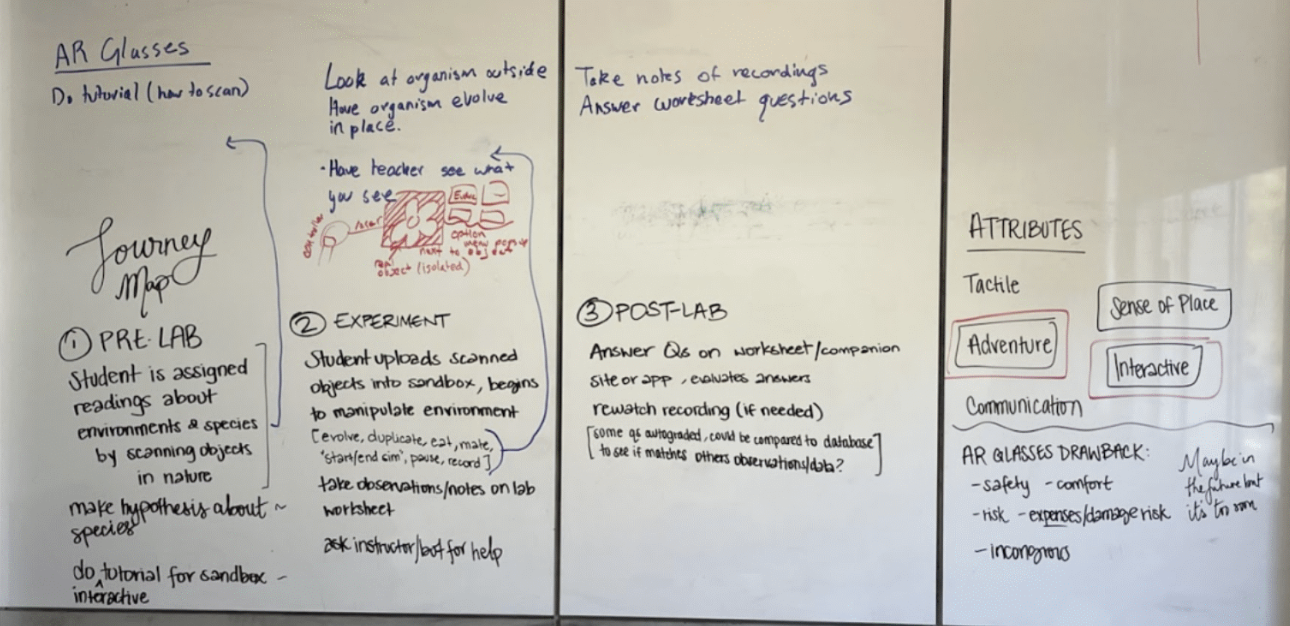 AR Glasses
Do tutorial (how to scan)
Look at organism outside
Have organism evolve
in place.
• Have teacher see what
you see
laser
Evolve
option
menu pops up
next to obj
real
object (isolated)
Journey
Map
① PRE-LAB
Student is assigned
readings about
environments & species
by scanning objects
in nature
make hypothesis about ~
species
do tutorial for sandbox -
^
interactive
② EXPERIMENT
Student uploads scanned
objects into sandbox, begins
to manipulate environment
[evolve, duplicate, eat, mate,
'start/end sim', pause, record]
take observations/notes on lab
worksheet
ask instructor/bot for help
Take notes of recordings
Answer worksheet questions
③ POST-LAB
Answer Qs on worksheet/companion
site or app, evaluates answers
rewatch recording (if needed)
[some qs autograded, could be compared to database]
to see if matches others observations/data?
ATTRIBUTES
Tactile
Sense of Place
Adventure
Interactive
Communication
AR GLASSES DRAWBACK:
- safety - comfort
- risk - expenses/damage risk
- incongrous
Maybe in
the future but
it's too soon